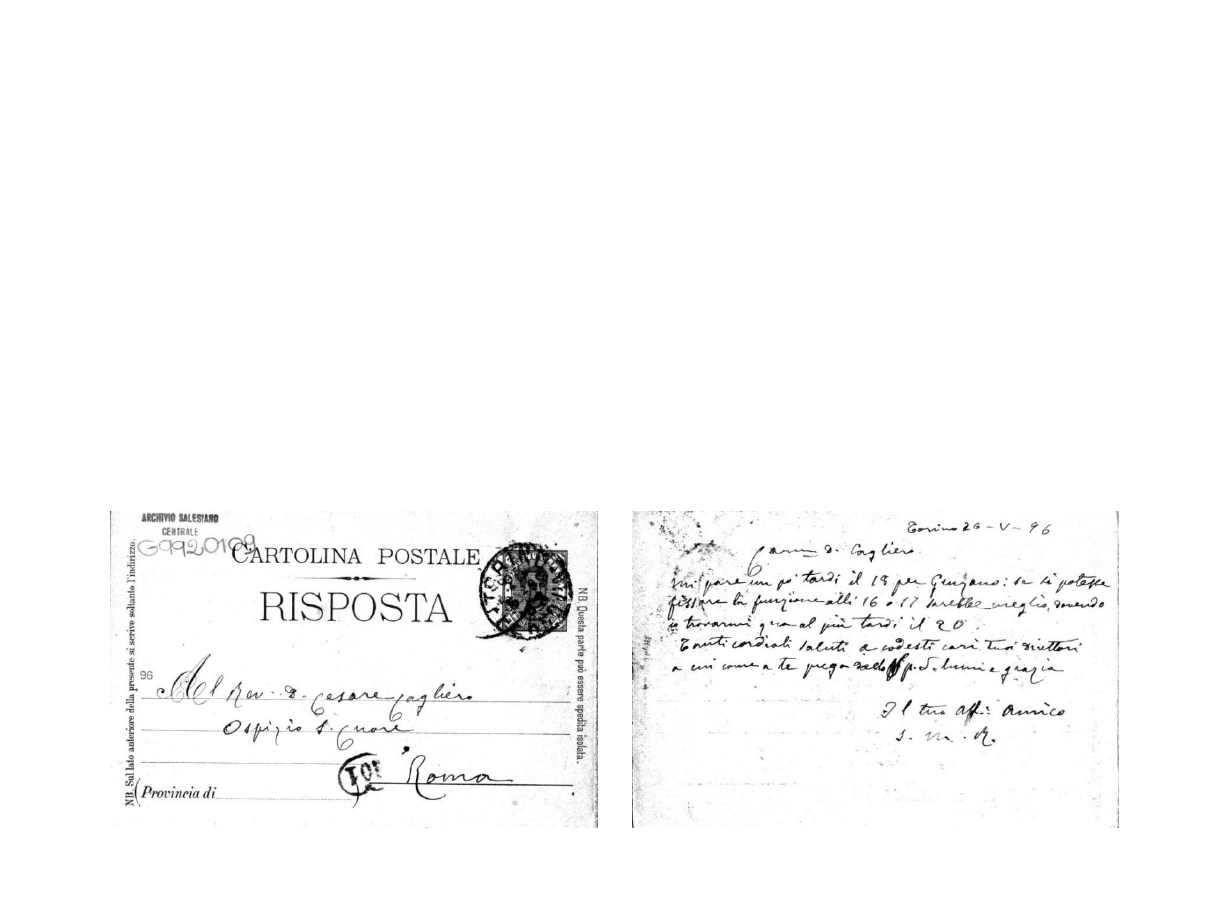 ARCHIVIO SALESIANO
CENTRALE
G9920109
CARTOLINA POSTALE
RISPOSTA
NB. Sul lato anteriore della presente si scrive soltanto l'indirizzo.
NB. Questa parte può essere spedita isolata.
96
Al Rev. D. Cesare Cagliero
Ospizio S. Cuore
101
Roma
(Provincia di
Torino 26-V-96
Carm D. Cagliero
Mi pare un po' tardi il 18 per Genzano: se si potesse
fissare la funzione alli 16 o 17 sarebbe meglio, dovendo
io trovarmi qua al più tardi il 20.
Tanti cordiali saluti a codesti cari tuoi Direttori
a cui come a te prega lumi e grazia
Il tuo Aff. Amico
S. M. R.